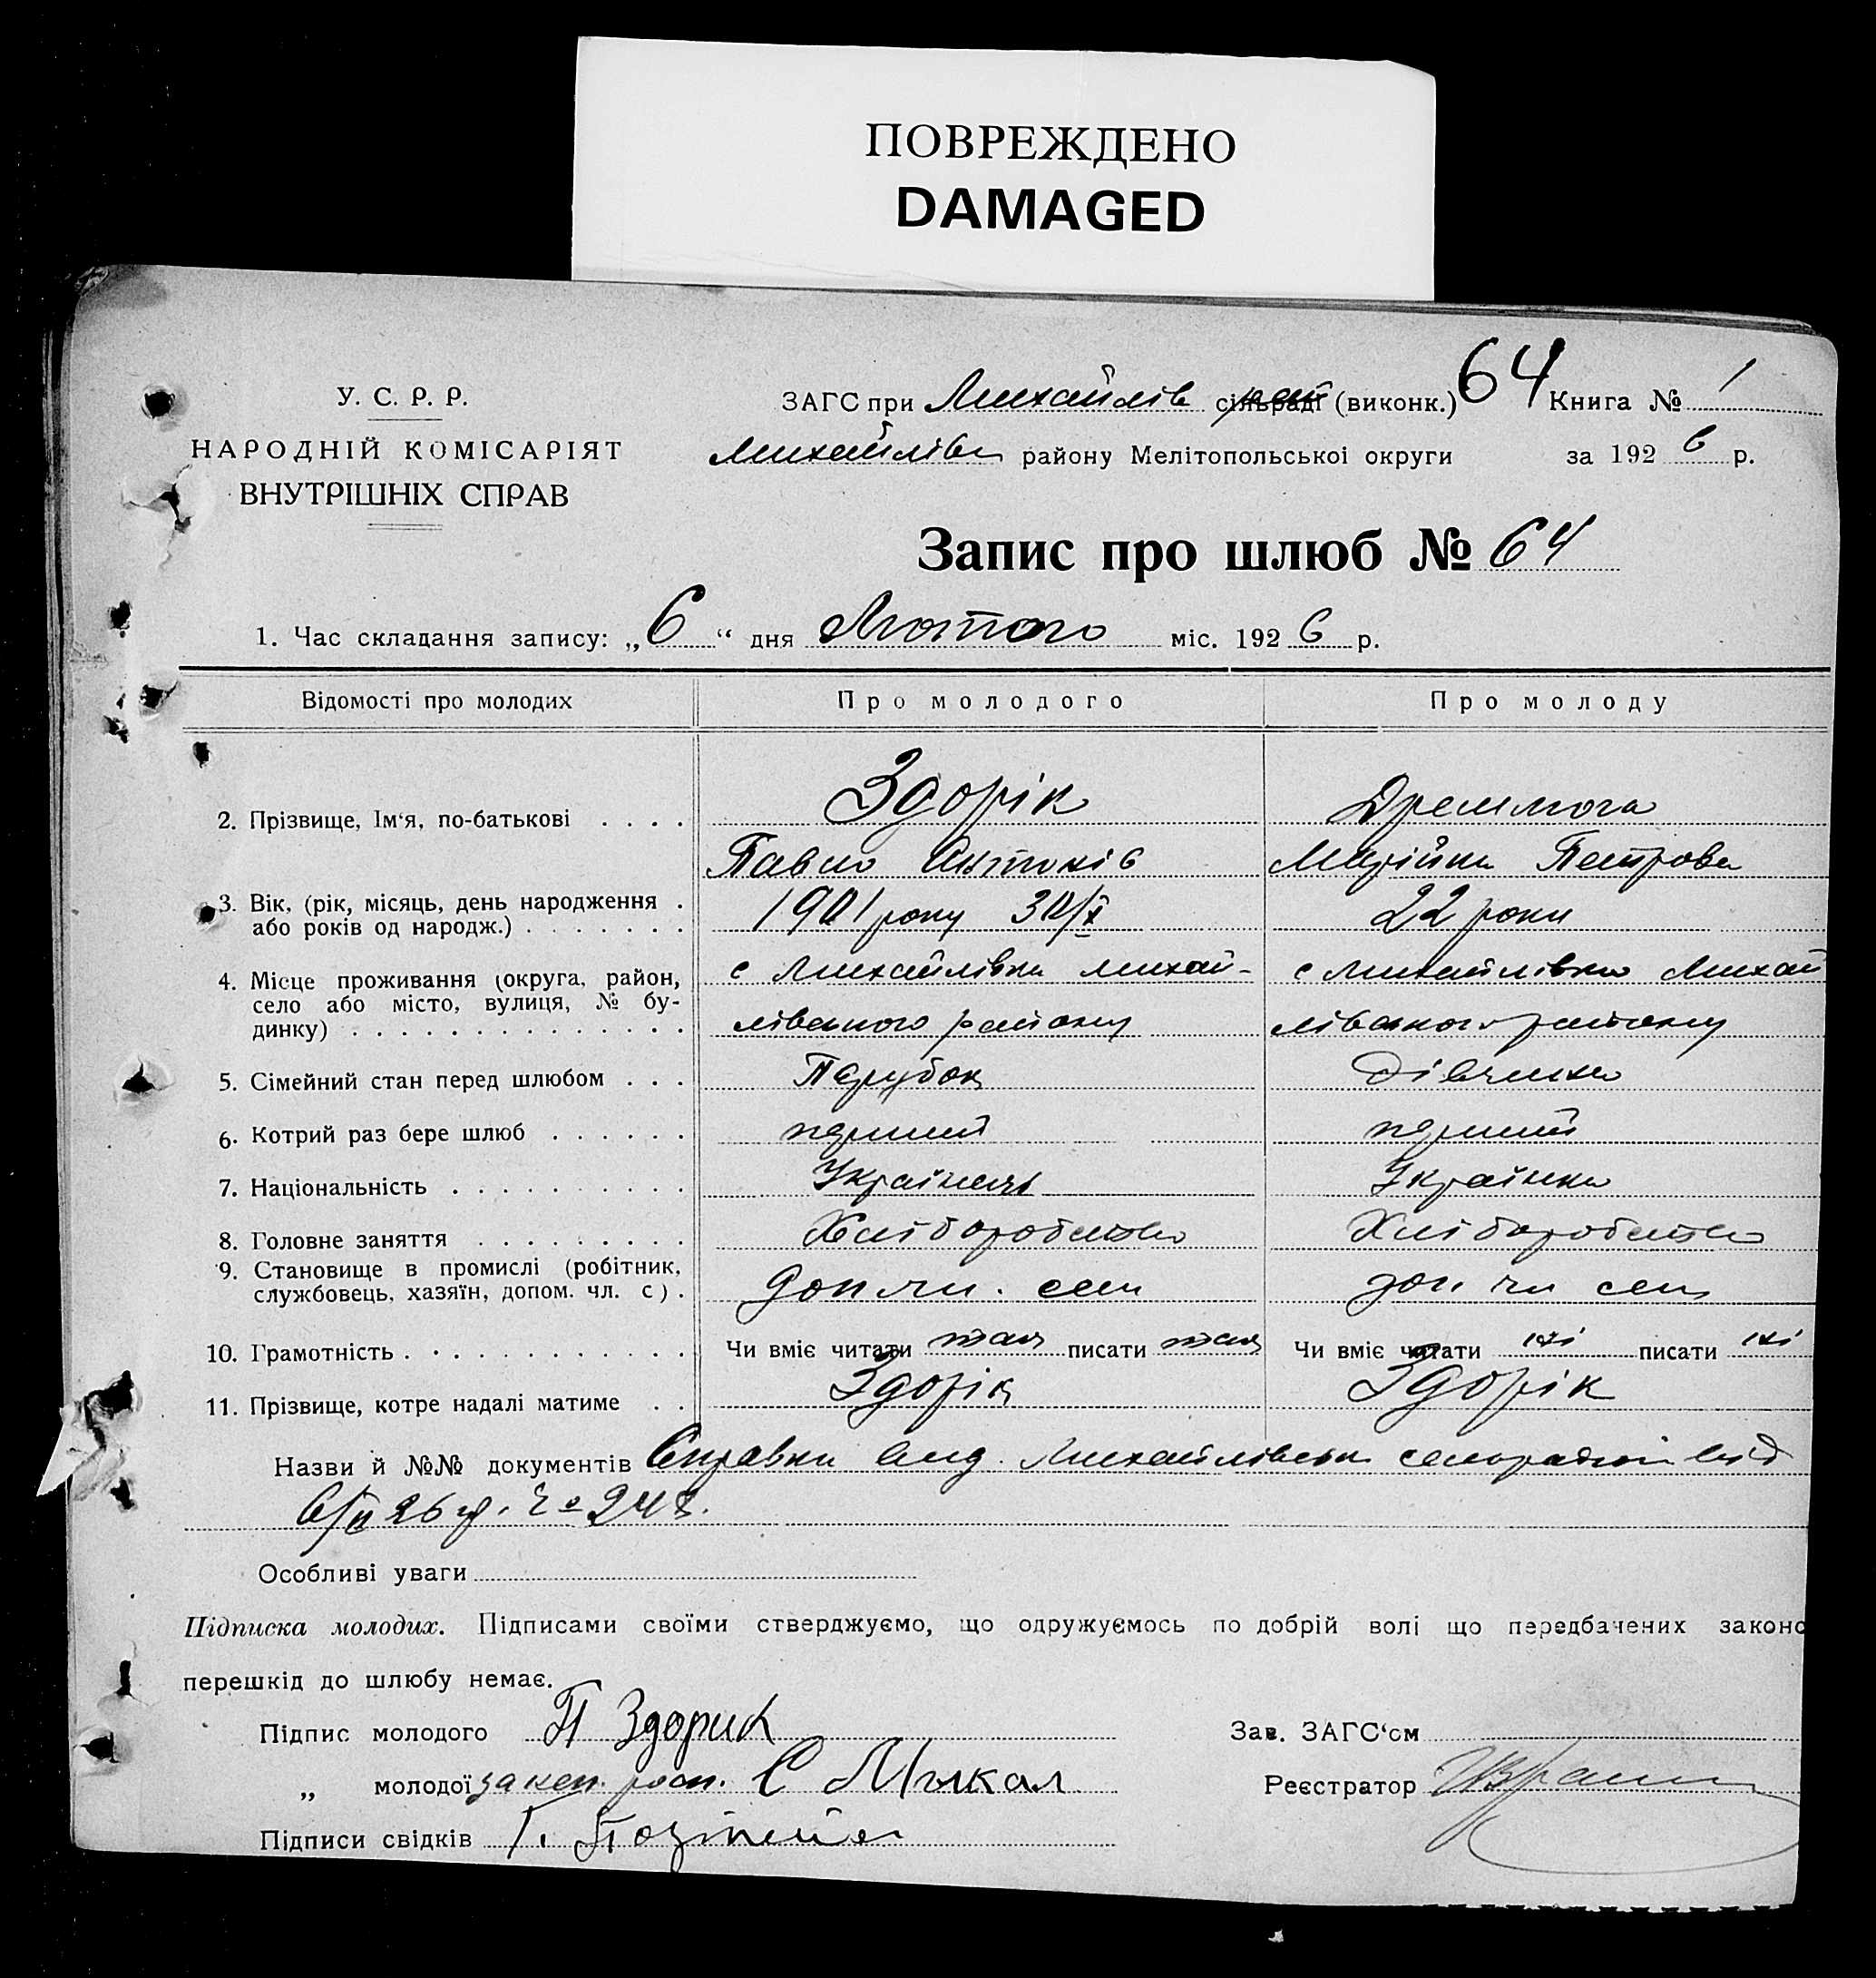 ПОВРЕЖДЕНО
DAMAGED
У. С. Р. Р.
НАРОДНІЙ КОМІСАРІЯТ
ВНУТРІШНІХ СПРАВ
ЗАГС при Михайлів сільраді (виконк.) 64 Книга № 1
Михайлівск району Мелітопольської округи за 1926 р.
Запис про шлюб № 64
1. Час складання запису: „6“ дня Лютого міс. 1926 р.
Відомості про молодих Про молодого Про молоду
2. Прізвище, Ім'я, по-батькові . . . . Здорік Дремлюга
Павло Антонів Марійка Петрова
3. Вік, (рік, місяць, день народження . 1901 року 30/X 22 роки
або років од народж.) . . . . . . .
4. Місце проживання (округа, район, с Михайлівка Михай- с Михайлівка Михай
село або місто, вулиця, № бу-
динку) . . . . . . . . . . . . . . лівського району лівського району
5. Сімейний стан перед шлюбом . . . Парубок Дівчина
6. Котрий раз бере шлюб . . . . . . перший перший
7. Національність . . . . . . . . . . Українець Українка
8. Головне заняття . . . . . . . . . Хліборобство Хліборобство
9. Становище в промислі (робітник,
службовець, хазяїн, допом. чл. с) . доп чл. сем доп чл сем
10. Грамотність . . . . . . . . . . . . Чи вміє читати так писати так Чи вміє читати ні писати ні
11. Прізвище, котре надалі матиме . . Здорік Здорік
Назви й №№ документів Справка вид. Михайлівськ сельрадой від
6/II 26 р.
Особливі уваги
Підписка молодих. Підписами своїми стверджуємо, що одружуємось по добрій волі що передбачених законо
перешкід до шлюбу немає.
Підпис молодого П Здорик Зав. ЗАГС'ом
„ молодої за неп. росп. С Мыкал Реєстратор
Підписи свідків Г.